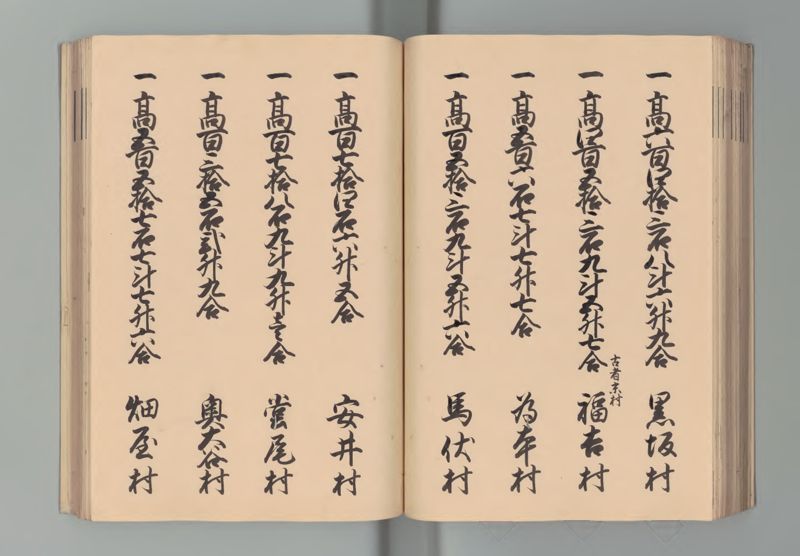 一 高六百四拾三石八斗六升九合 黒坂村
一 高四百五拾三石九斗五升七合 福吉村
古者京村
一 高五百六石七斗七升七合 為本村
一 高百五拾三石九斗五升六合 馬伏村
一 高百七拾四石六升五合 安井村
一 高百七拾八石九斗九升壱合 當尾村
一 高百三拾五石弐升九合 奥大谷村
一 高五百五拾七石七斗七升六合 畑屋村